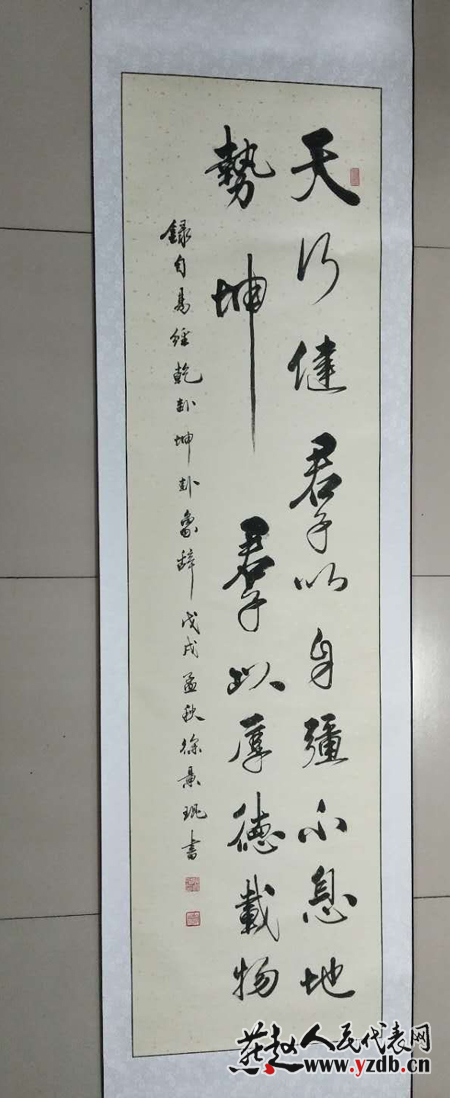 天行健君子以自彊不息地
勢坤君子以厚德載物
錄自易經乾卦坤卦象辭戊戌孟秋徐景書
燕赵人民代表网
www.yzdb.cn